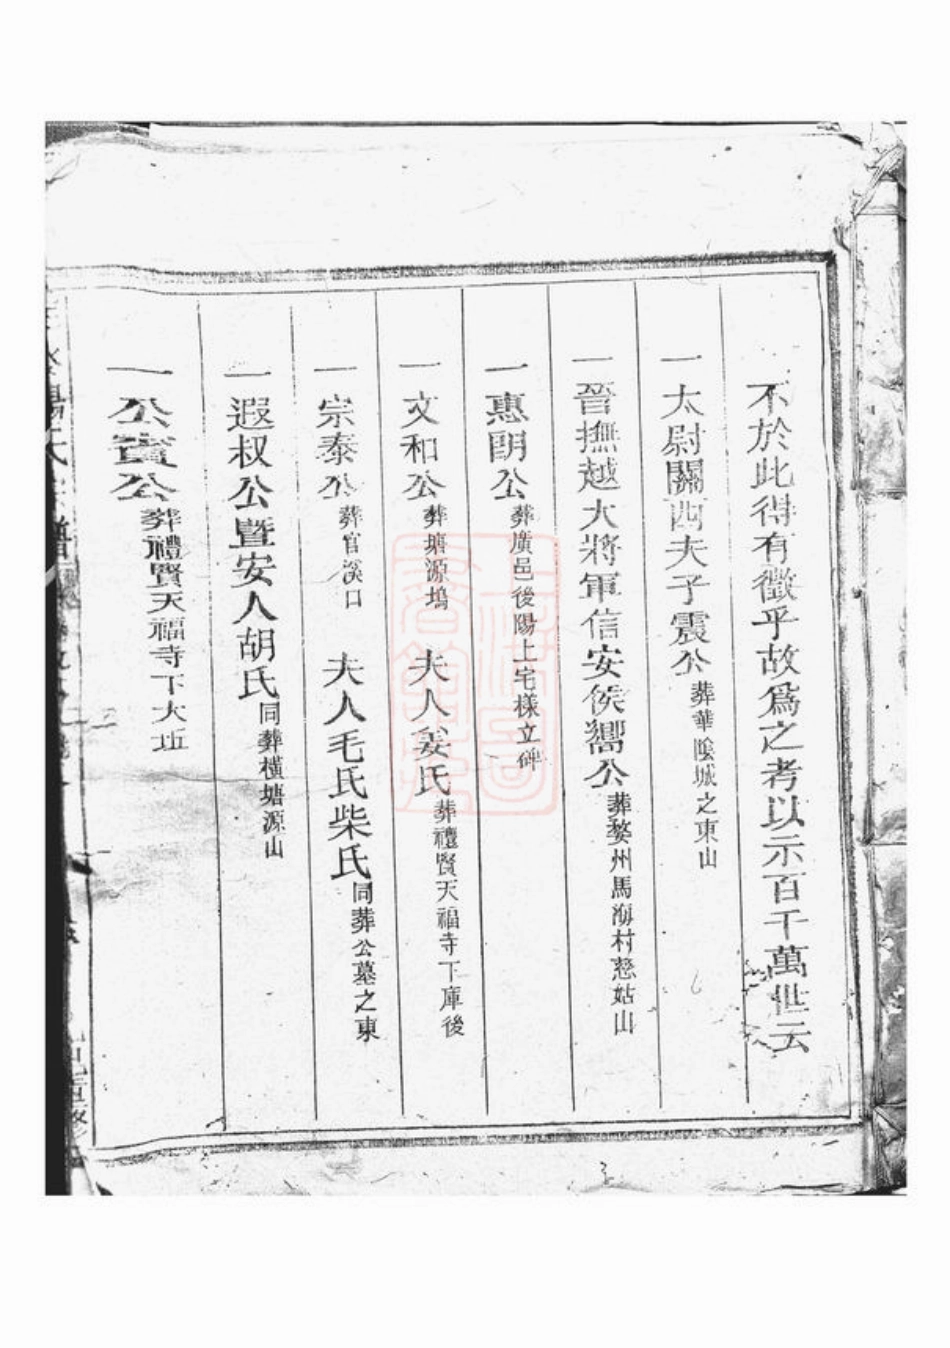 不於此得有徵乎故為之考以示百千萬世云
一太尉關西夫子震公葬華陰城之東山
一晉撫越大將軍信安侯嚮公葬婺州馬海村慈姑山
一惠朗公葬廣邑後陽上宅樣立碑
一文和公葬塘源塢 夫人姜氏葬禮賢天福寺下庫後
一宗泰公葬官溪口 夫人毛氏柴氏同葬公墓之東
一遐叔公暨安人胡氏同葬橫塘源山
一公賓公葬禮賢天福寺下大坵